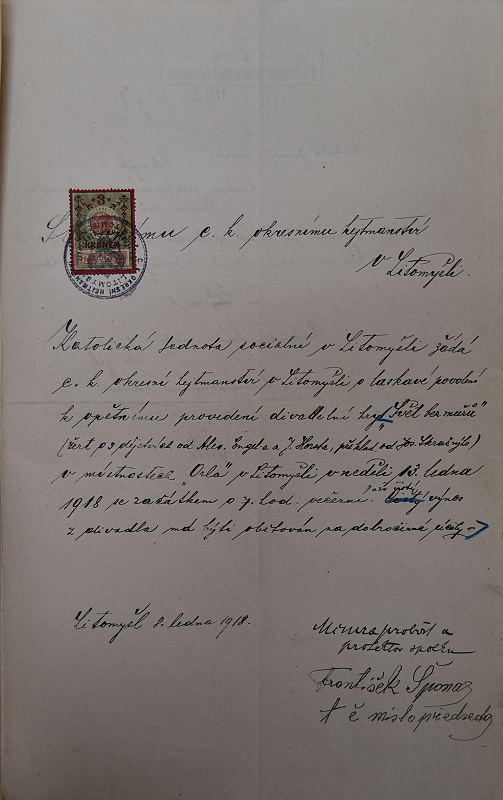 3
KRONEN
C. K. OKRESNÍ HEJTMAN
LITOMYŠL
c. k. okresnímu hejtmanství
v Litomyšli.
Katolická Jednota sociální v Litomyšli žádá
c. k. okresní hejtmanství v Litomyšli o laskavé povolení
k opětnému provedení divadelní hry „Svět bez mužů"
(žert o 3 dějstvích od Alex. Engela a J. Horsta, překlad od Jos. Skružného)
v místnostech „Orla" v Litomyšli v neděli 13. ledna
1918 se začátkem o 7. hod. večerní. čistý výnos
z divadla má býti obětován na dobročinné účely
Litomyšl 8. ledna 1918.
probošt a
protektor spolku
František
t č místopředseda